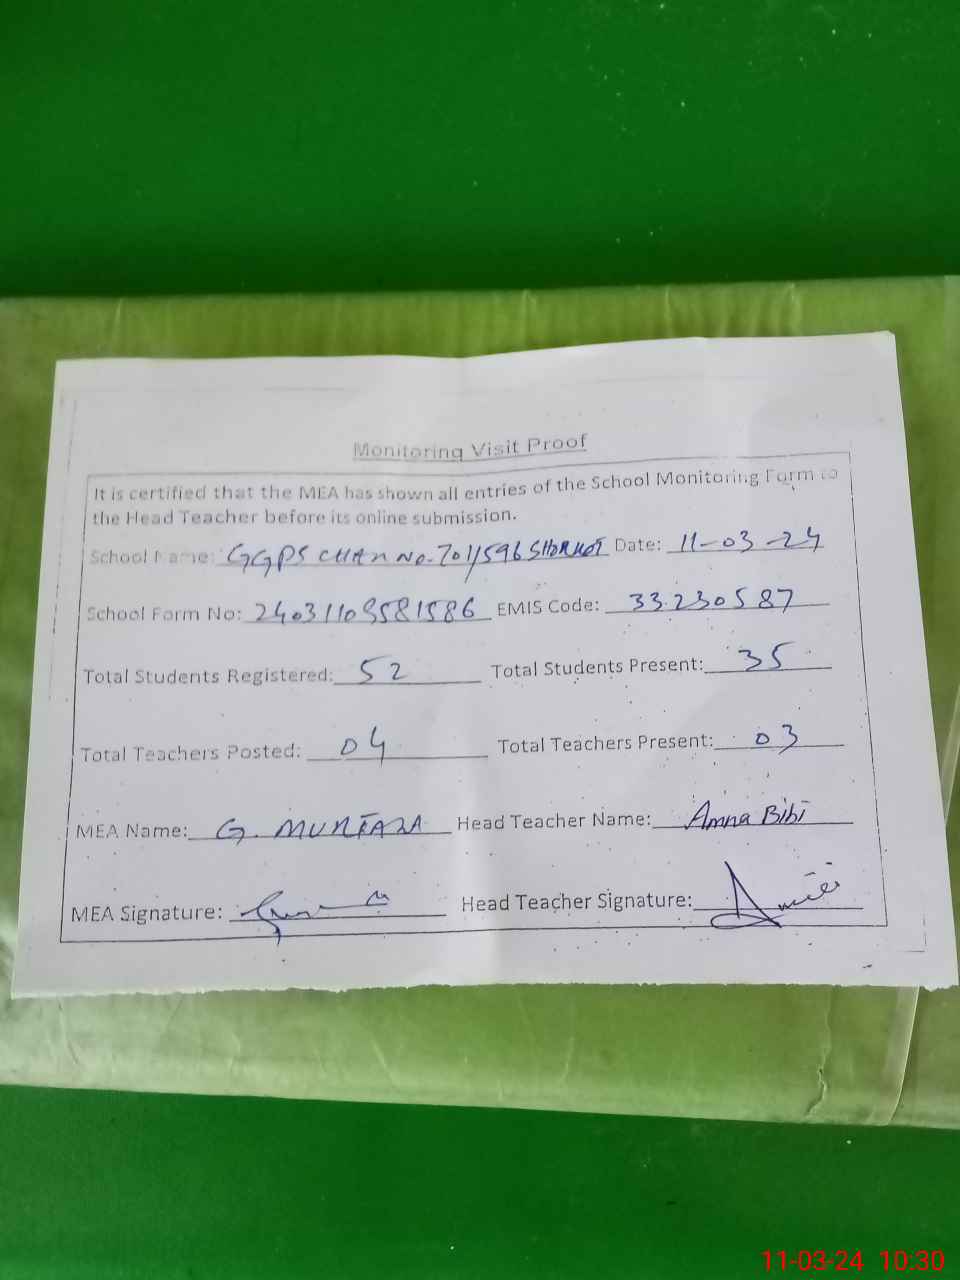 Monitoring Visit Proof
It is certified that the MEA has shown all entries of the School Monitoring Form to
the Head Teacher before its online submission.
School Name: GGPS CHAH No. 701/596 SHORKOT Date: 11-03-24
School Form No: 24031103581586 EMIS Code: 33230587
Total Students Registered: 52 Total Students Present: 35
Total Teachers Posted: 04 Total Teachers Present: 03
MEA Name: G. MURTAZA Head Teacher Name: Amna Bibi
MEA Signature: Head Teacher Signature:
11-03-24 10:30